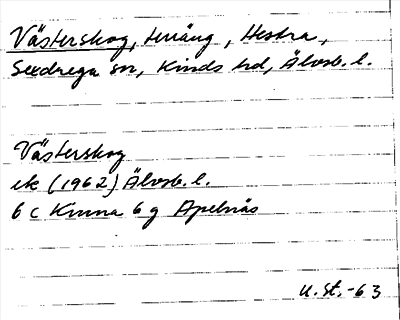 Västerskog, terräng, Hestra,
Seedrega sn, Kinds hd, Älvsb. l.
Västerskog
ek (1962) Älvsb. l.
6 c Kinna 6 g Apelnäs
U. St. -63